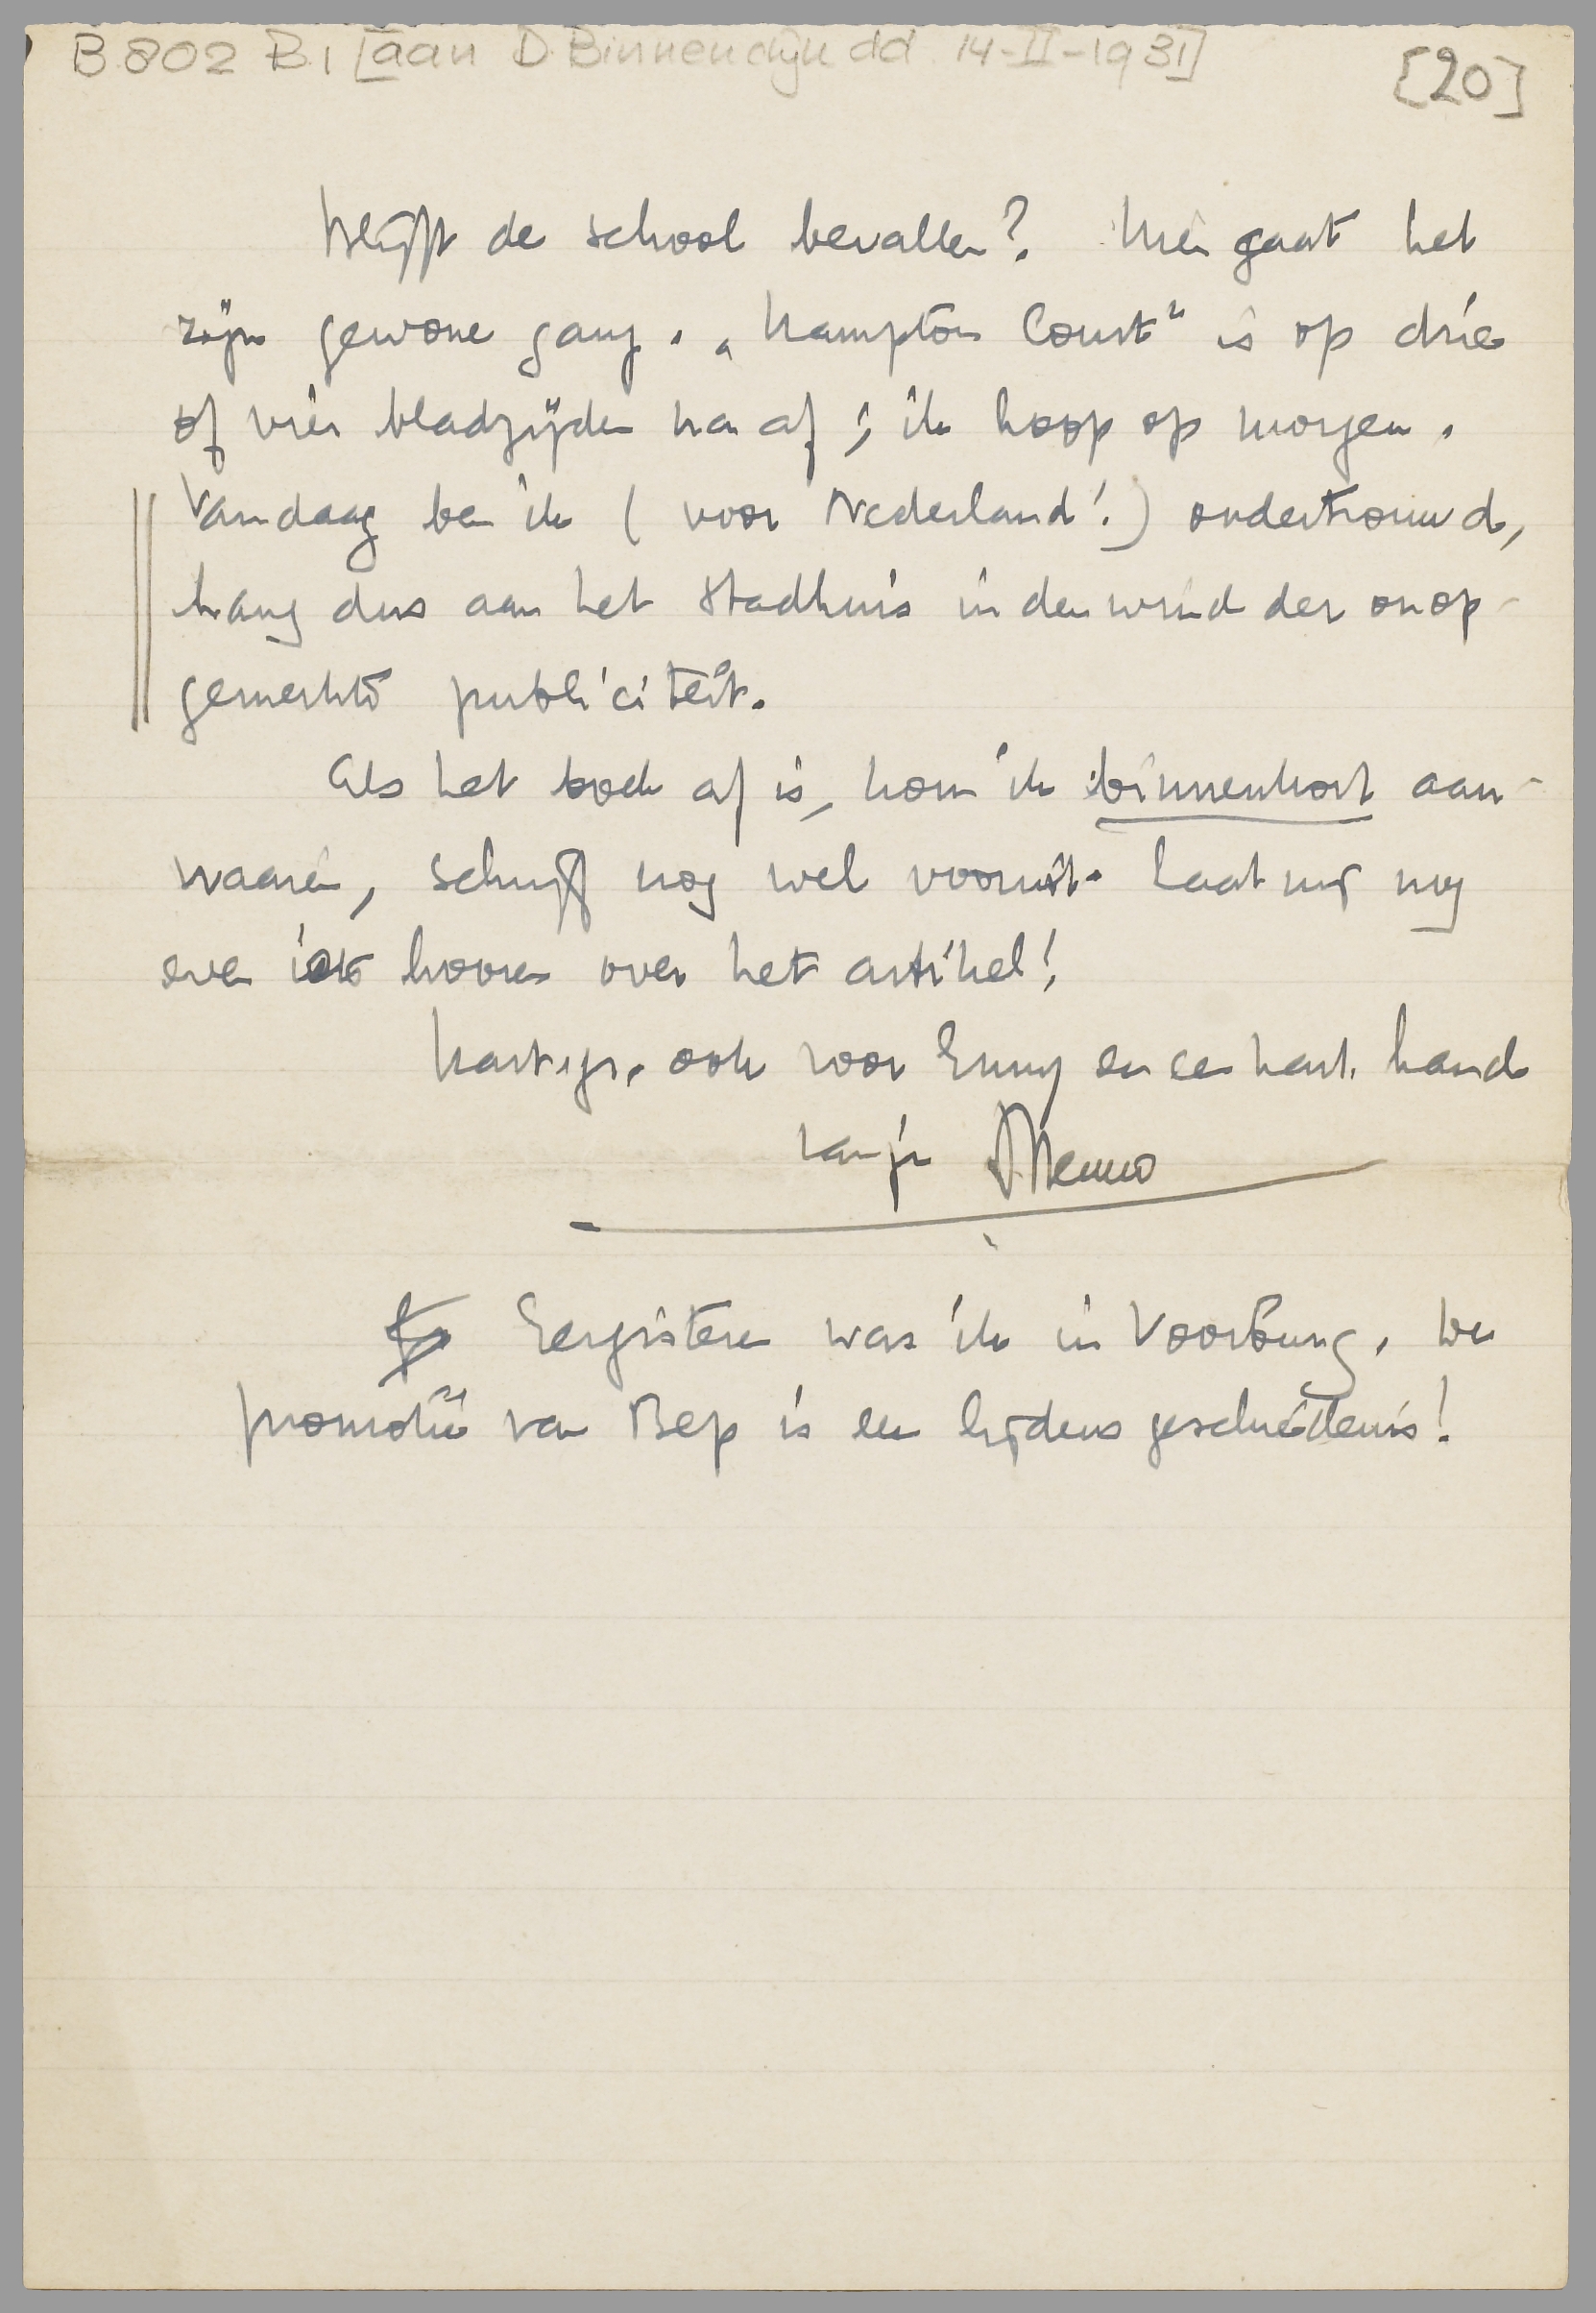 B 802 B.1 [aan D. Binnendijk dd 14-II-1931]
[20]
Blijft de school bevallen? Hier gaat het
zijn gewone gang. „Hampton Court" is op drie
of vier bladzijden na af; ik hoop op morgen.
Vandaag ben ik (voor Nederland!) ondertrouwd,
hang dus aan het Stadhuis in den wind der onop-
gemerkte publiciteit.
Als het boek af is, kom ik binnenkort aan-
waaien, schrijf nog wel vooruit. Laat mij nog
even iets hooren over het artikel!
Hart. gr. ook voor Enny en een hart. hand
van je Menno
Eergisteren was ik in Voorburg. De
promotie van Bep is een lijdensgeschiedenis!